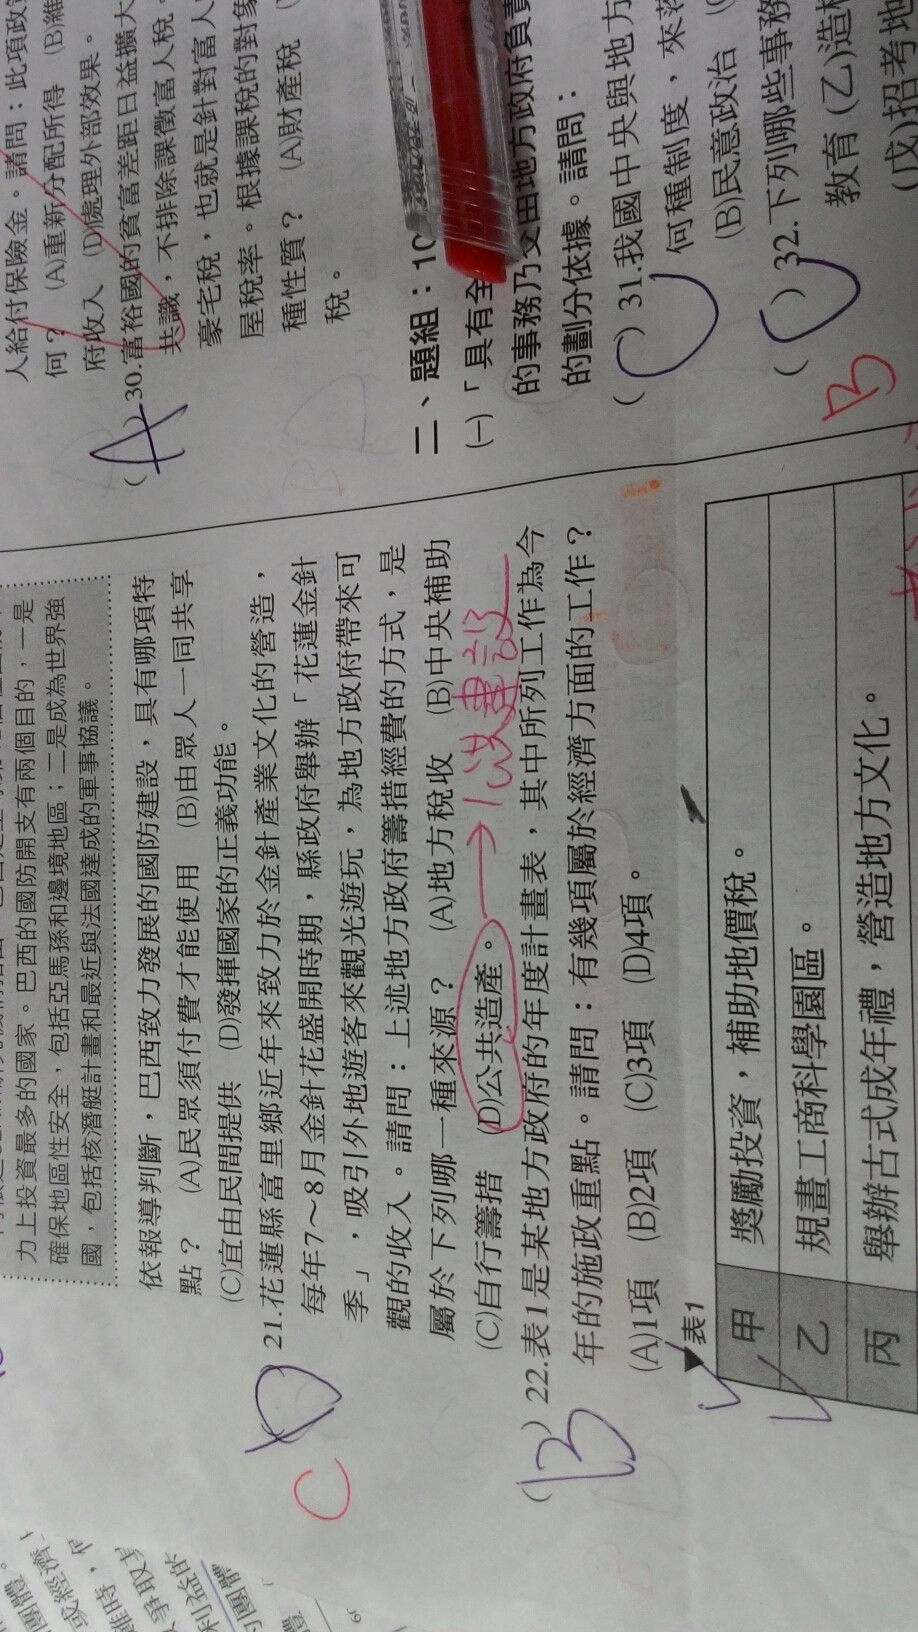 力上投資最多的國家。巴西的國防開支有兩個目的，一是
確保地區性安全，包括亞馬孫和邊境地區；二是成為世界強
國，包括核潛艇計畫和最近與法國達成的軍事協議。
依報導判斷，巴西致力發展的國防建設，具有哪項特
點？ (A)民眾須付費才能使用 (B)由眾人一同共享
(C)宜由民間提供 (D)發揮國家的正義功能。
C
(D) 21.花蓮縣富里鄉近年來致力於金針產業文化的營造，
每年7～8月金針花盛開時期，縣政府舉辦「花蓮金針
季」，吸引外地遊客來觀光遊玩，為地方政府帶來可
觀的收入。請問：上述地方政府籌措經費的方式，是
屬於下列哪一種來源？ (A)地方稅收 (B)中央補助
(C)自行籌措 (D)公共造產。
建設
(B) 22.表1是某地方政府的年度計畫表，其中所列工作為今
年的施政重點。請問：有幾項屬於經濟方面的工作？
(A)1項 (B)2項 (C)3項 (D)4項。
▼表1
甲 獎勵投資，補助地價稅。
乙 規畫工商科學園區。
丙 舉辦古式成年禮，營造地方文化。
人給付保險金。請問：此項政
何？ (A)重新分配所得 (B)維
府收入 (D)處理外部效果。
(A) 30.富裕國的貧富差距日益擴大
共識，不排除課徵富人稅。
豪宅稅，也就是針對富人
屋稅率。根據課稅的對象
種性質？ (A)財產稅
稅。
二、題組：10
(一)「具有全
的事務乃交由地方政府負責
的劃分依據。請問：
(C) 31.我國中央與地方
何種制度，來
(B)民意政治
(C) 32.下列哪些事務
B
教育 (乙)造
(戊)招考地